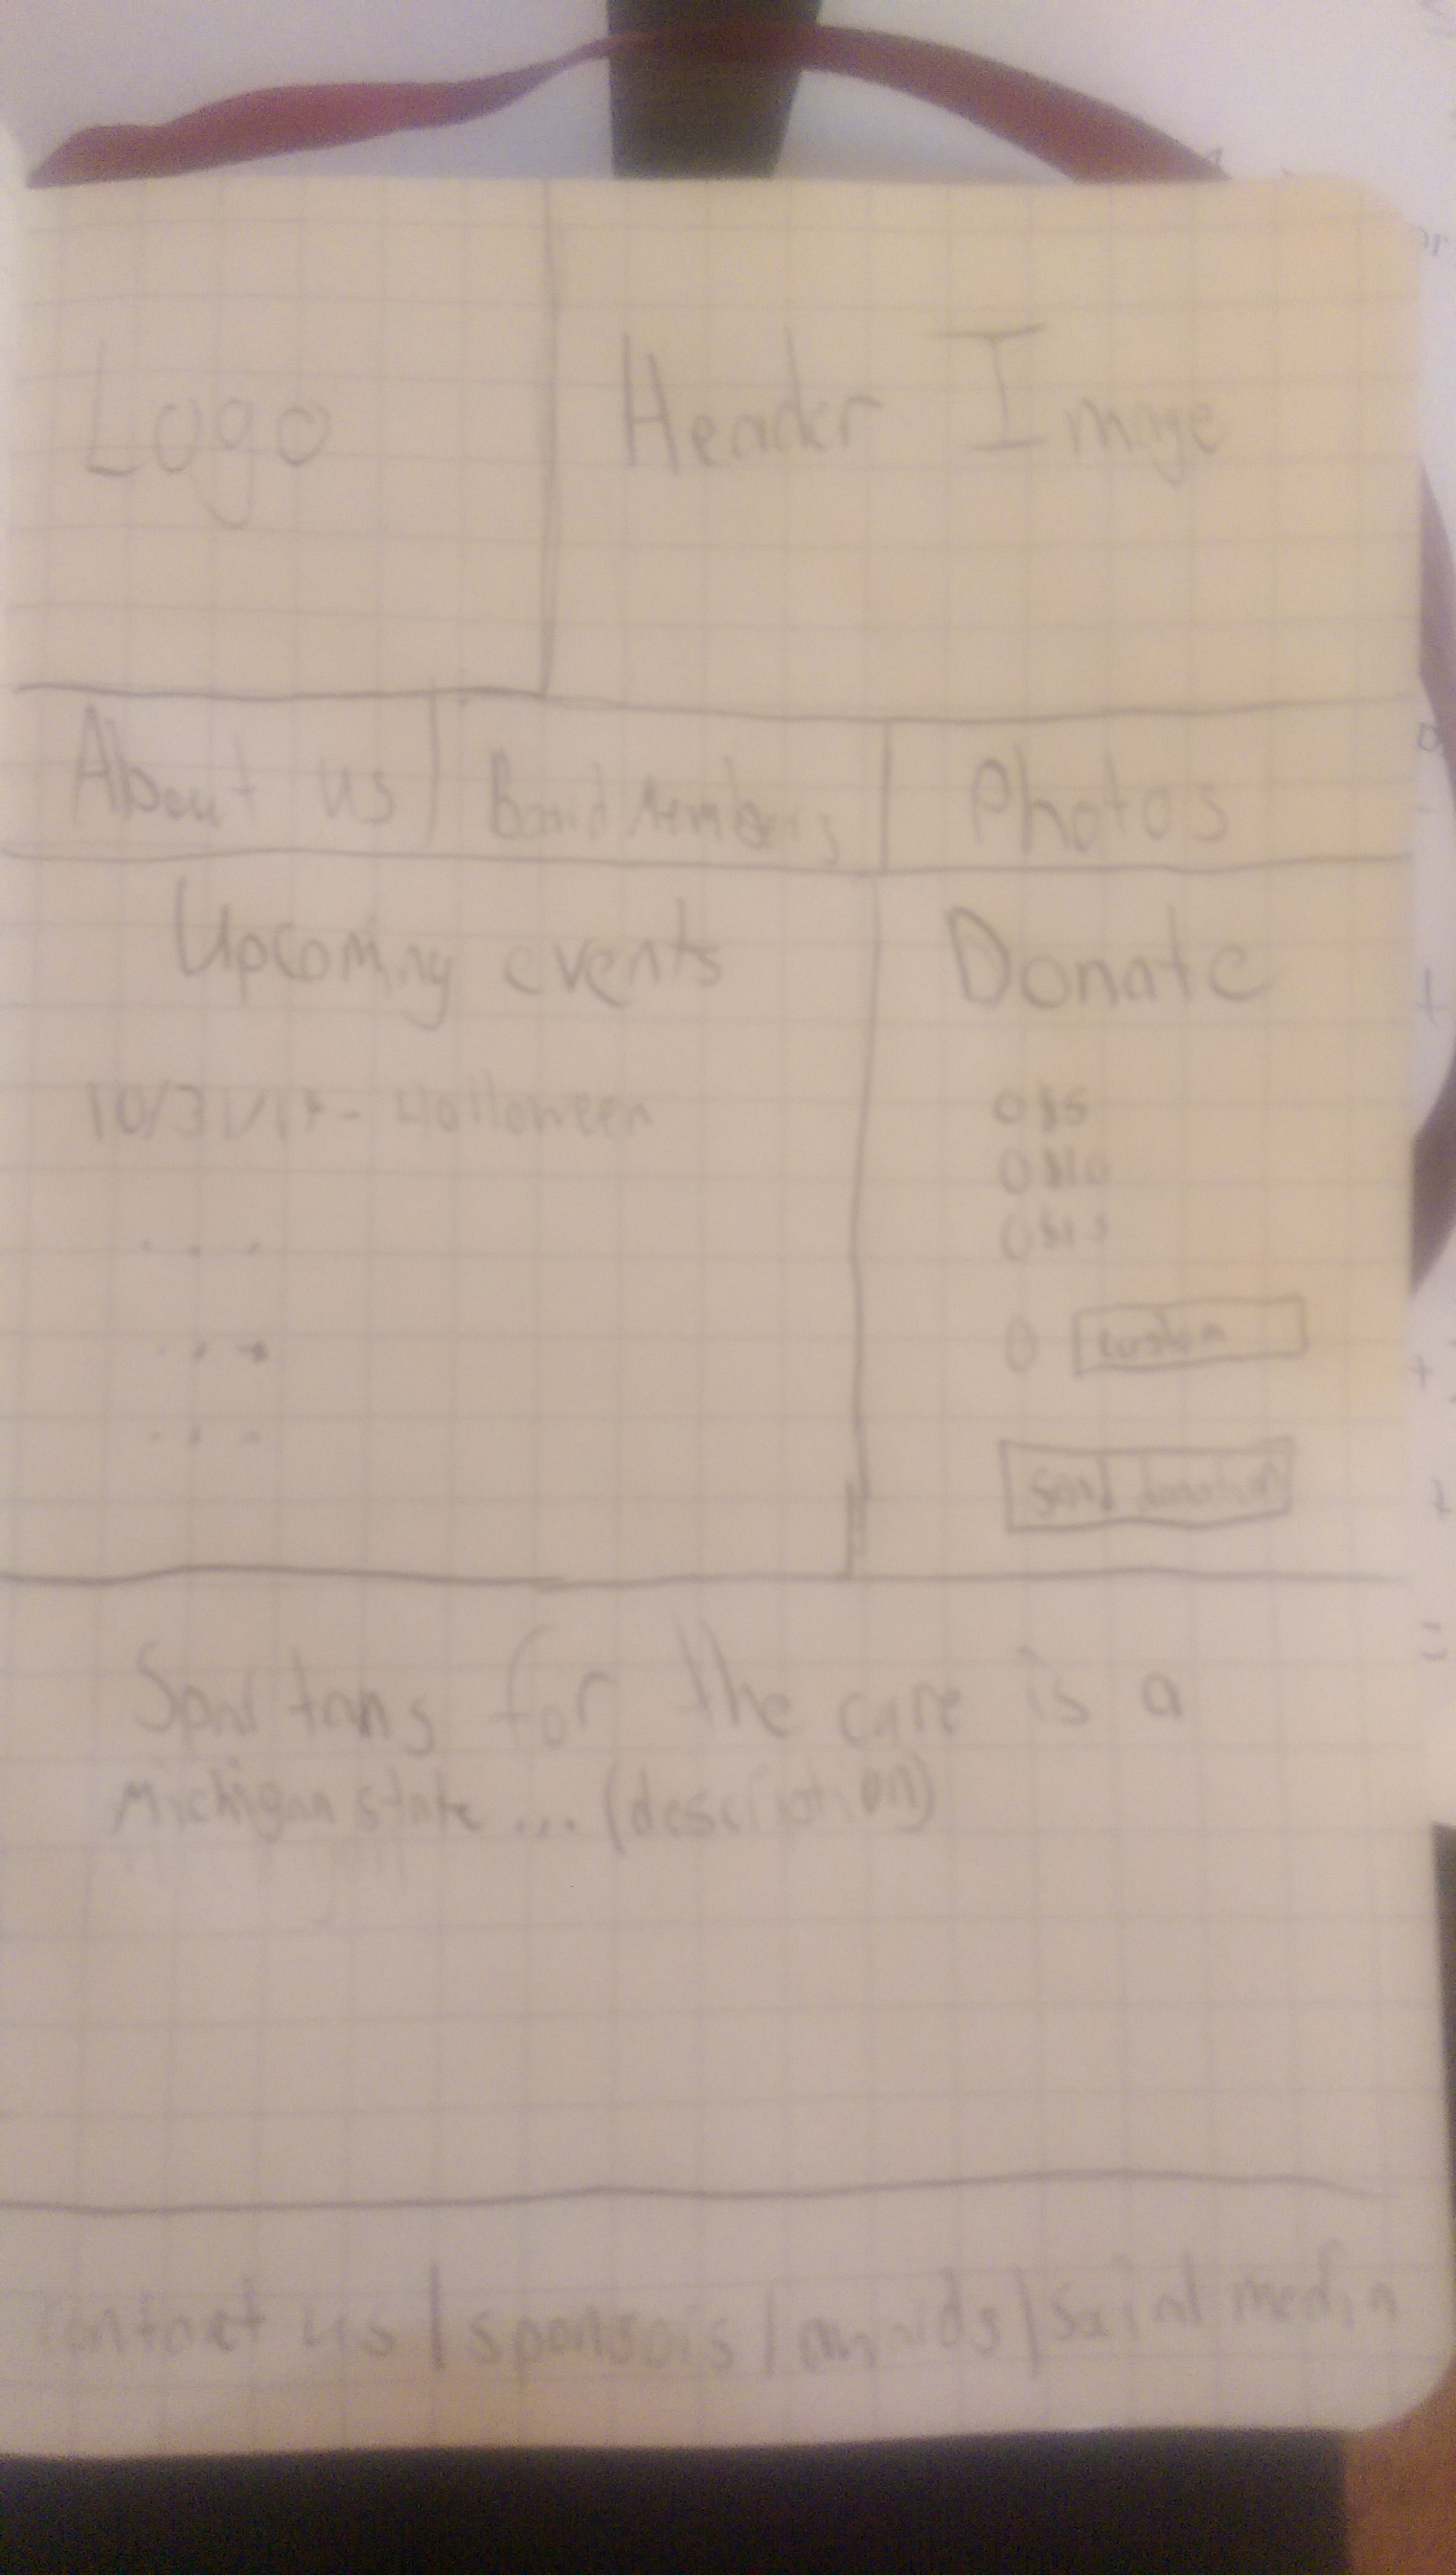 Logo
Header Image
About us | Board Members | Photos
Upcoming events
Donate
- Halloween
$5
$10
custom
send donation
Spartans for the cure is a
Michigan state... (description)
contact us | sponsors | awards | social media